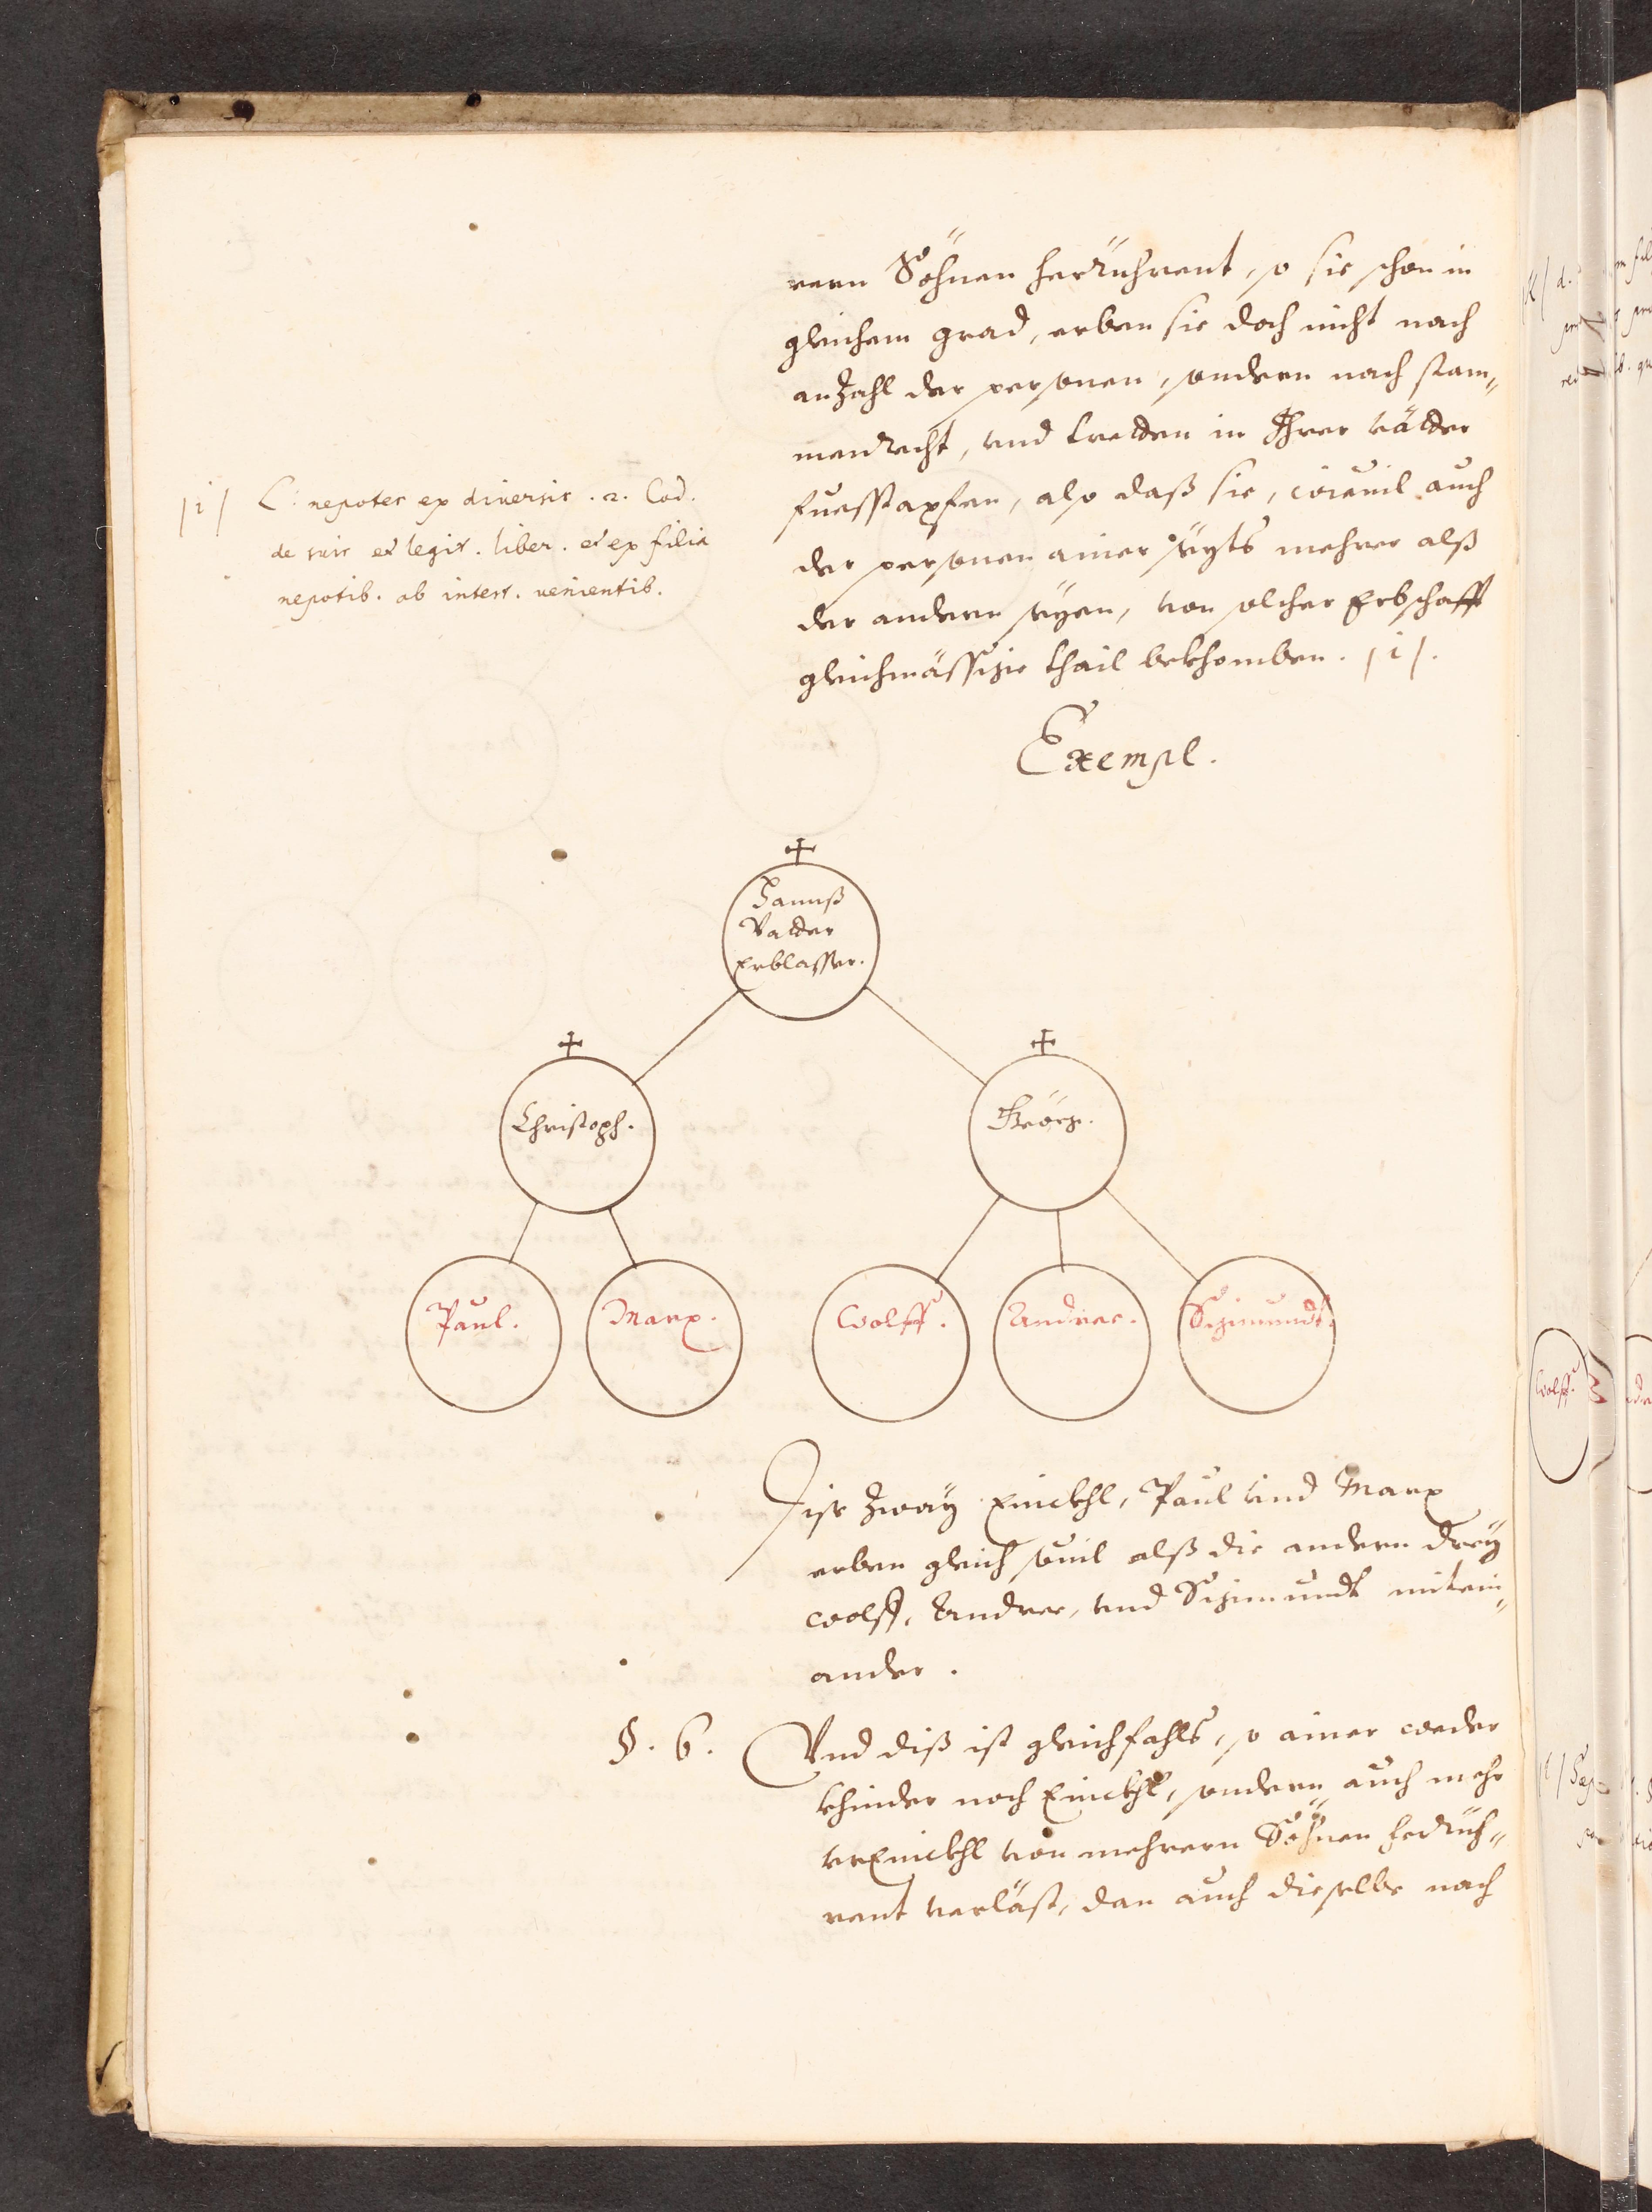 rern Söhnen herrüehrent, so sie schon in
gleichem grad, erben sie doch nicht nach
anzahl der personen, sondern nach stam„
menrecht, vnd tretten in Ihrer vätter
fuesstapfen, also daß sie, wieuil auch
der personen ainer seyts mehrer alß
der andern seyen, von solcher Erbschafft
gleichmässige thail bekhomben. /i/.
/i/ L: nepotes ex diversis . 2. Cod.
de suis et legit. liber. et ex filia
nepotib. ab intest. venientib.
Exempl.
Hannß
Vatter
Erblasser.
Christoph.
Geörg.
Paul.
Marx.
Wolff.
Andree.
Sigimundt.
Die zway Einickhl, Paul vnd Marx
erben gleich souil alß die andern drey
Wolff, Andree, vnd Sigimundt mitein„
ander.
§. 6. Vnd diß ist gleichfahls, so ainer weder
khinder noch Einickhl, sondern auch mehr
vrEinickhl von mehrern Söhnen herrüeh„
rent verläst, dan auch dieselbe nach
Wolff.